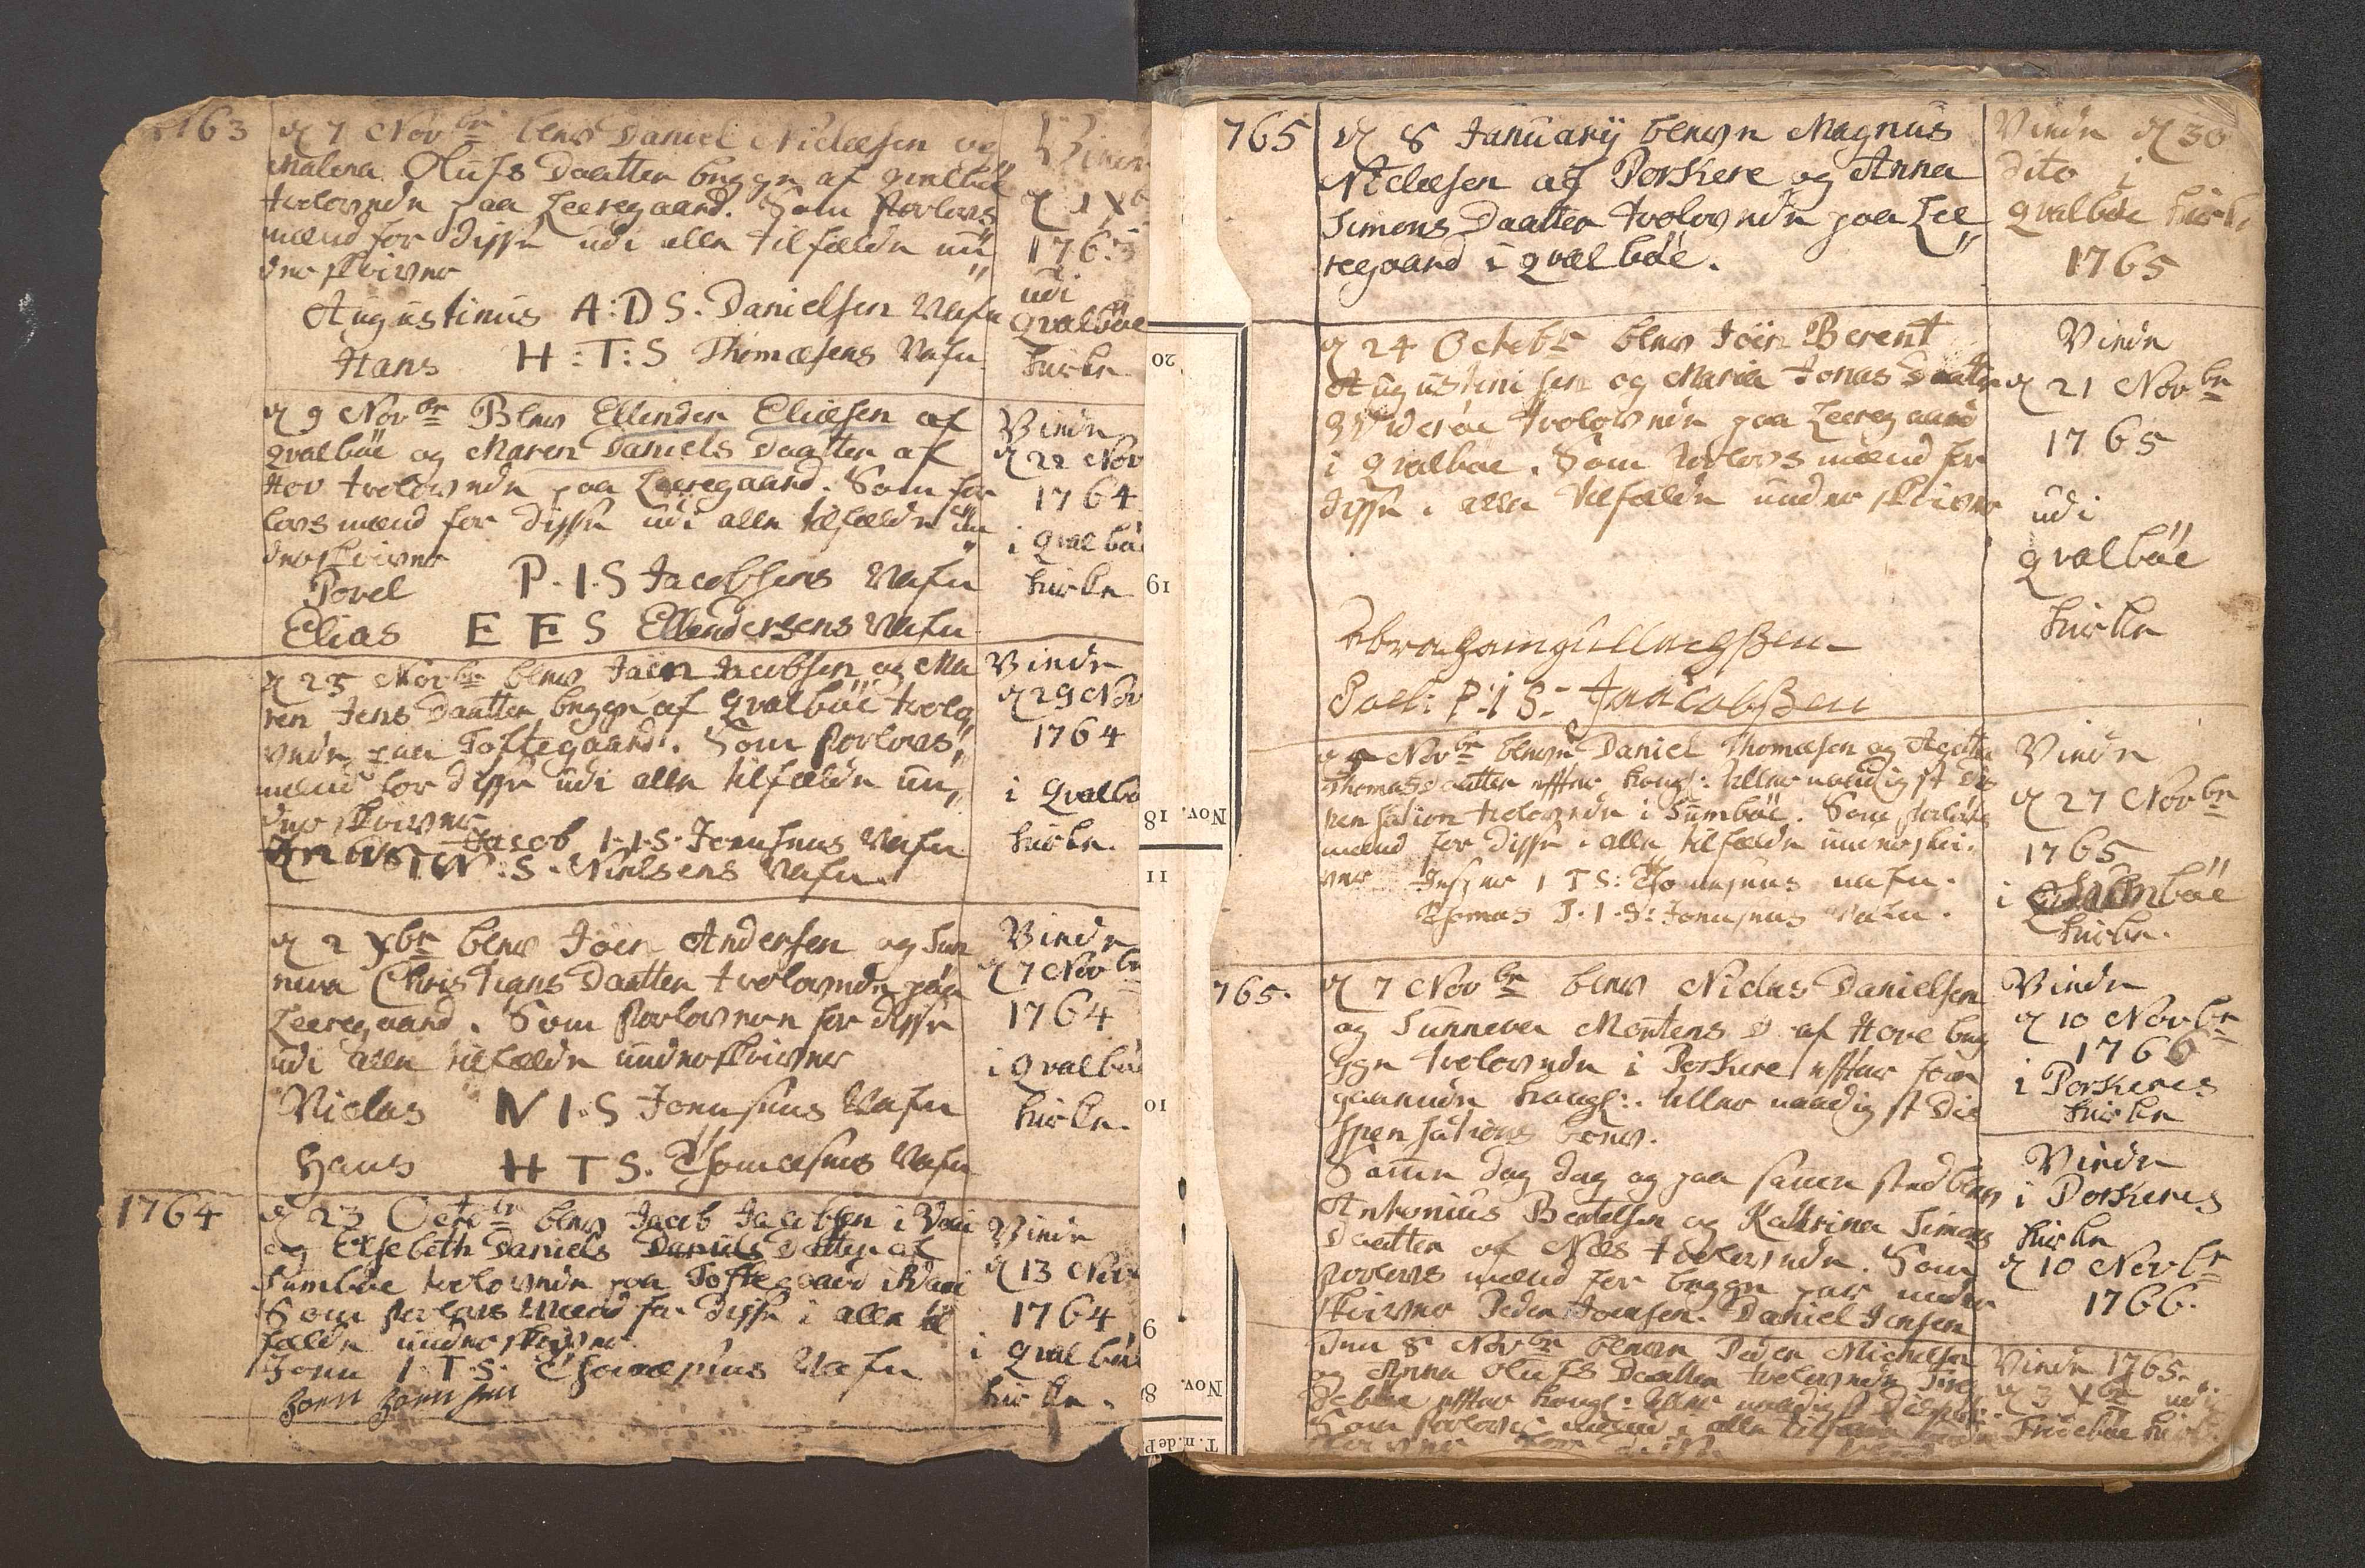 1763
d 7 Novbr blev Daniel Niclæsen og
Malena Olufs Daatter begge af qvalbøe
trolovede paa Leeregaard. Som forlovs
mænd for disse udi alle tilfælde un
derskriver
Augustinus A:D S. Danielsen Nafn
Hans H:T:S Thomæsens Nafn
Viede
d 1 Xb
1763
udi
qvalbøe
kirke
d 9 Novbr Blev Ellender Eliæsen af
qvalbøe og Maren Daniels Daatter af
Hov trolovede paa Leeregaard. Som for
lovs mænd for disse udi alle tilfælde un
derskriver
Povel P.I.S Jacobsens Nafn
Elias E E S Ellendersens Nafn
Viede
d 22 Nov
1764
i qvalbø
kirke
d 25 Novbr blev Joen Jacobsen og Ma
ren Jens Daatter begge af qvalbøe trolo
vede paa Toftegaard. Som forlovs
mænd for disse udi alle tilfælde un,
derskriver
Jacob I.I.S. Joensens Nafn
N:S. Nielsens Nafn
Viede
d 29 Nov
1764
i qvalbø
kirke.
d 2 Xbr blev Joen Andersen og Sun
neva Christians Daatter trolovede paa
Leeregaard. Som forlovere for disse
udi alle tilfælde underskriver
Niclas N I.S Joensens Nafn
Hans H T S. Thomæsens Nafn
Viede
d 7 Novbr
1764
i qvalbø
kirke.
1764
d 23 Octobr blev Jacob Jacobsen i Vaai
og Elsebeth Daniels Daniels Datter af
Sumbøe trolovede paa Toftegaard i Vaai
Som forlovs mænd for disse i alle til
fælde underskriver
Joen I.T S. Thomæsens Nafn
Joen Joensen
Viede
d 13 Nov
1764
i qvalbø
kirke.
765
d 8 Januarij bleve Magnus
Niclæsen af Porkere og Anna
Simons Daatter trolovede paa Lee
regaard i qvalbøe.
Viede d 30
dito i
qvalbøe kirk
1765
d 24 Octobr blev Joen Berent
Augustini sen og Maria Jonas Daatter
Qviderøe trolovede paa Leeregaard
i qvalbøe. Som forlovs mænd for
disse i alle tilfælde underskriver
Poel: P:I S: Jaacobßen
Viede
d 21 Novbr
1765
udi
qvalbøe
kirke
d 4 Novbr bleve Daniel Thomæsen og Agatha
Thomasdaatter efter kongl: aller naadigst dis
pensation trolovede i Sumbøe. Som forlovs
mænd for disse i alle tilfælde underskri.
ver Jesper I T S: Thomæsens nafn.
Thomas T.I.S: Joensens Nafn.
Viede
d 27 Novbr
1765
i Sumbøe
kirke.
765.
d 7 Novbr blev Niclas Danielsen
og Sunneva Mortens D af Hove beg
gge trolovede i Porkere efter fore
gaaende kongl: aller naadigst Dis
spensations brev.
Samme dag dag og paa samme sted blev
Antonius Bertelsen og Kathrina Simons
Daatter af Næs trolovede. Som
forlovs mænd for begge par under
skriver Peder Joensen. Daniel Jensen
Viede
d 10 Novbr
1766
i Porkeres
kirke
Viede
i Porkeres
kirke
d 10 Novbr
1766.
Den 8 Novbr bleve Peder Michelsen
og Anna Olufs Daatter trolovede
efter kongl: aller naadigst
Som forlovs mænd i alle tilfælde
Viede 1765.
d 3 Xbr udi
Froebøe kirk
20
19
Nov. 18
11
10
9
Nov. 8
T. n. de P